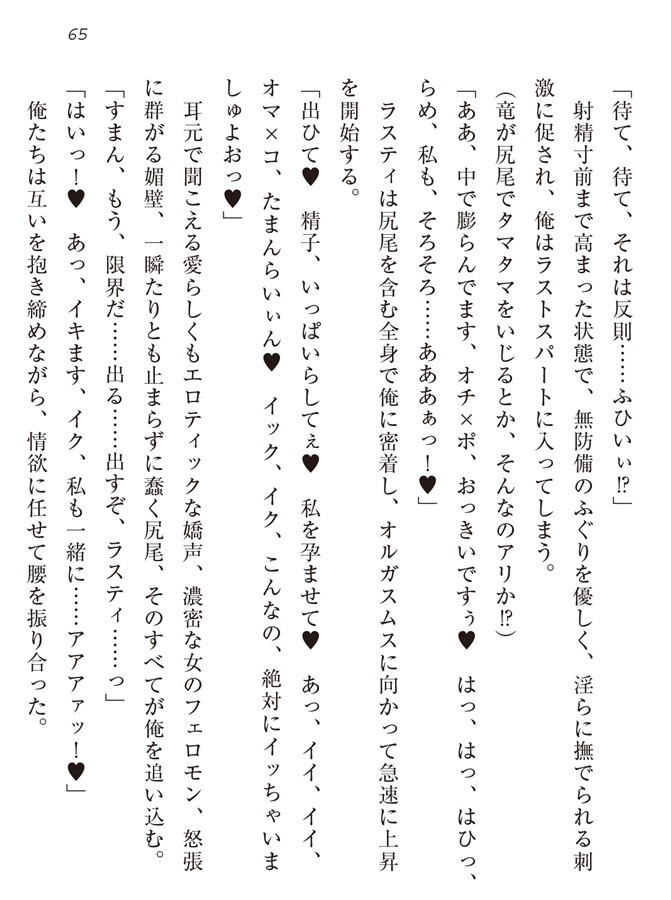 65
「待て、待て、それは反則……ふひいぃ!?」
　射精寸前まで高まった状態で、無防備のふぐりを優しく、淫らに撫でられる刺
激に促され、俺はラストスパートに入ってしまう。
（竜が尻尾でタマタマをいじるとか、そんなのアリか!?）
「ああ、中で膨らんでます、オチ×ポ、おっきいですぅ♥　はっ、はっ、はひっ、
らめ、私も、そろそろ……あああぁっ！♥」
　ラスティは尻尾を含む全身で俺に密着し、オルガスムスに向かって急速に上昇
を開始する。
「出ひて♥　精子、いっぱいらしてぇ♥　私を孕ませて♥　あっ、イイ、イイ、
オマ×コ、たまんらいぃん♥　イック、イク、こんなの、絶対にイッちゃいま
しゅよおっ♥」
　耳元で聞こえる愛らしくもエロティックな嬌声、濃密な女のフェロモン、怒張
に群がる媚壁、一瞬たりとも止まらずに蠢く尻尾、そのすべてが俺を追い込む。
「すまん、もう、限界だ……出る……出すぞ、ラスティ……っ」
「はいっ！♥　あっ、イキます、イク、私も一緒に……アアアァッ！♥」
　俺たちは互いを抱き締めながら、情欲に任せて腰を振り合った。